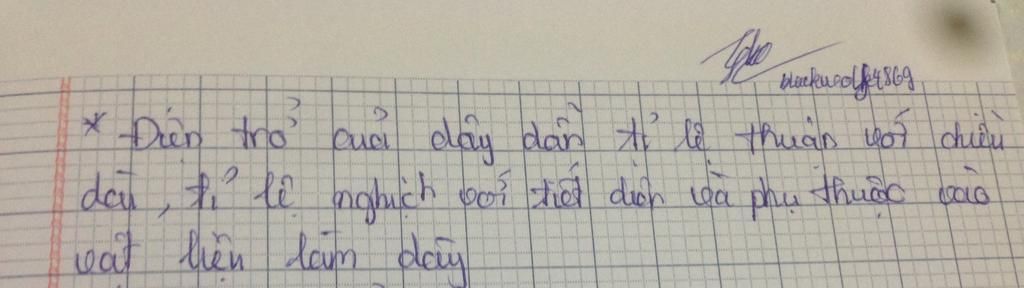 blackwolf4869
* Điện trở của dây dẫn tỉ lệ thuận với chiều
dài, tỉ lệ nghịch với tiết diện và phụ thuộc vào
vật liệu làm dây